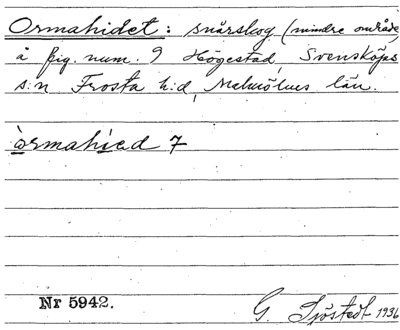 Ormahidet: snårskog (mindre område)
å fig. num. 9 Högestad, Svensköps
s:n Frosta h:d, Malmöhus län.
òrmahied 7
Nr 5942.
G. Sjöstedt 1936